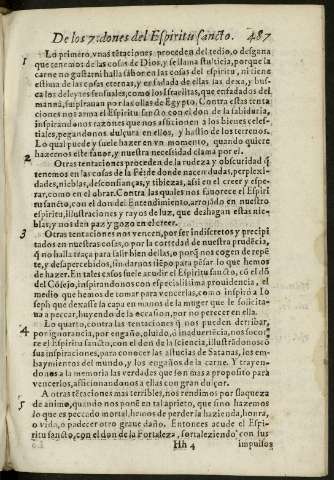 De los 7. dones del Espiritu sancto. 487
1 Lo primero, vnas tētaciones proceden del tedio, o desgana
que tenemos de las cosas de Dios, y se llama stulticia, porque la
carne no gusta ni halla sabor en las cosas del espiritu, ni tiene
estima de las cosas eternas, y enfadada de ellas las dexa, y bus-
ca los deleytes sensuales, como los Israelitas, que enfadados del
manná, suspirauan por las ollas de Egypto. Contra estas tenta
ciones nos arma el Espiritu sancto con el don de la sabiduria,
inspirandonos razones que nos aficionen a los bienes celes-
tiales, pegandonos dulçura en ellos, y hastio de los terrenos.
Lo qual puede y suele hazer en vn momento, quando quiere
hazernos este fauor, y nuestra necessidad clama por el.
2 Otras tentaciones proceden de la rudeza y obscuridad q̄
tenemos en las cosas de la Fè: de donde nacen dudas, perplexi-
dades, nieblas, desconfianças, y tibiezas, assi en el creer y espe-
rar, como en el obrar. Contra las quales nos fauorece el Espiri
tu sancto, con el don del Entendimiento, arrojādo en nuestro
espiritu, illustraciones y rayos de luz, que deshagan estas nie-
blas, y nos den paz y gozo en el creer.
3 Otras tentaciones nos vencen, por ser indiscretos y precipi
tados en nuestras cosas, o por la cortedad de nuestra prudēcia,
q̄ no halla traça para salir bien dellas, o porq̄ nos cogen de repē
te, y desapercebidos, sin darnos tiēpo para pēsar lo que hemos
de hazer. En tales casos suele acudir el Espiritu sancto, cō el dō
del Cōsejo, inspirandonos con especialissima prouidencia, el
medio que hemos de tomar para vencerlas, como inspirò a Io
seph que dexasse la capa en manos de la muger que le solicita-
ua a peccar, huyendo de la occasion, por no perecer en ella.
4 Lo quarto, contra las tentaciones q̄ nos pueden derribar,
por ignorancia, por engaño, oluido, ò inaduertēcia, nos socor
re el Espiritu sancto, con el don de la sciencia, illustrādonos cō
sus inspiraciones, para conocer las astucias de Satanas, los em-
baymientos del mundo, y los engaños de la carne. Y trayen-
donos a la memoria las verdades que son mas a proposito para
vencerlos, aficionandonos a ellas con gran dulçor.
5 A otras tētaciones mas terribles, nos rendimos por flaqueza
de animo, quando nos ponē en tal aprieto, que sino hazemos
lo que es peccado mortal, hemos de perder la hazienda, honra,
o vida, o padecer otro graue daño. Entonces acude el Espi-
ritu sancto, con el don de la Fortaleza, fortaleziendo con sus
Hh 4 impulsos